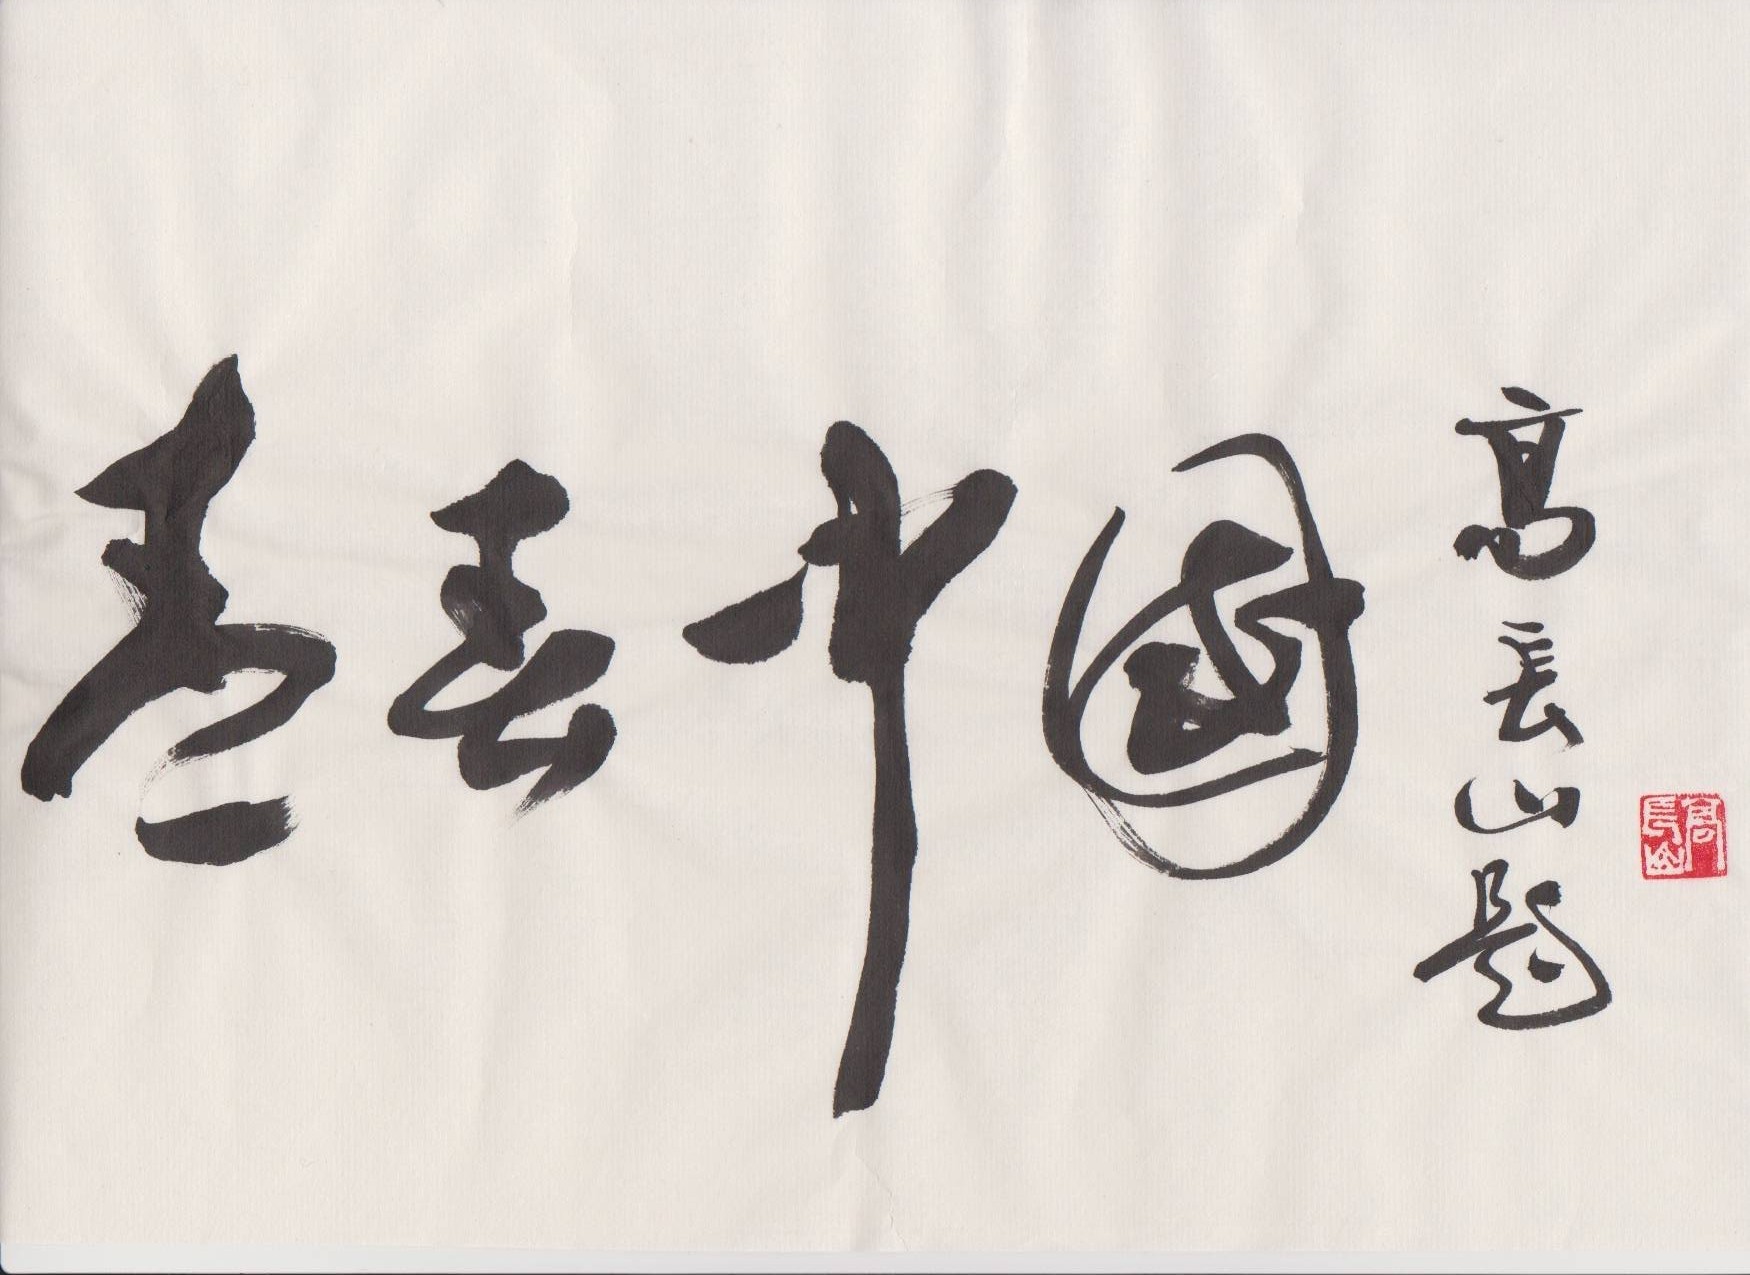 青春中國
高長山題
高長山